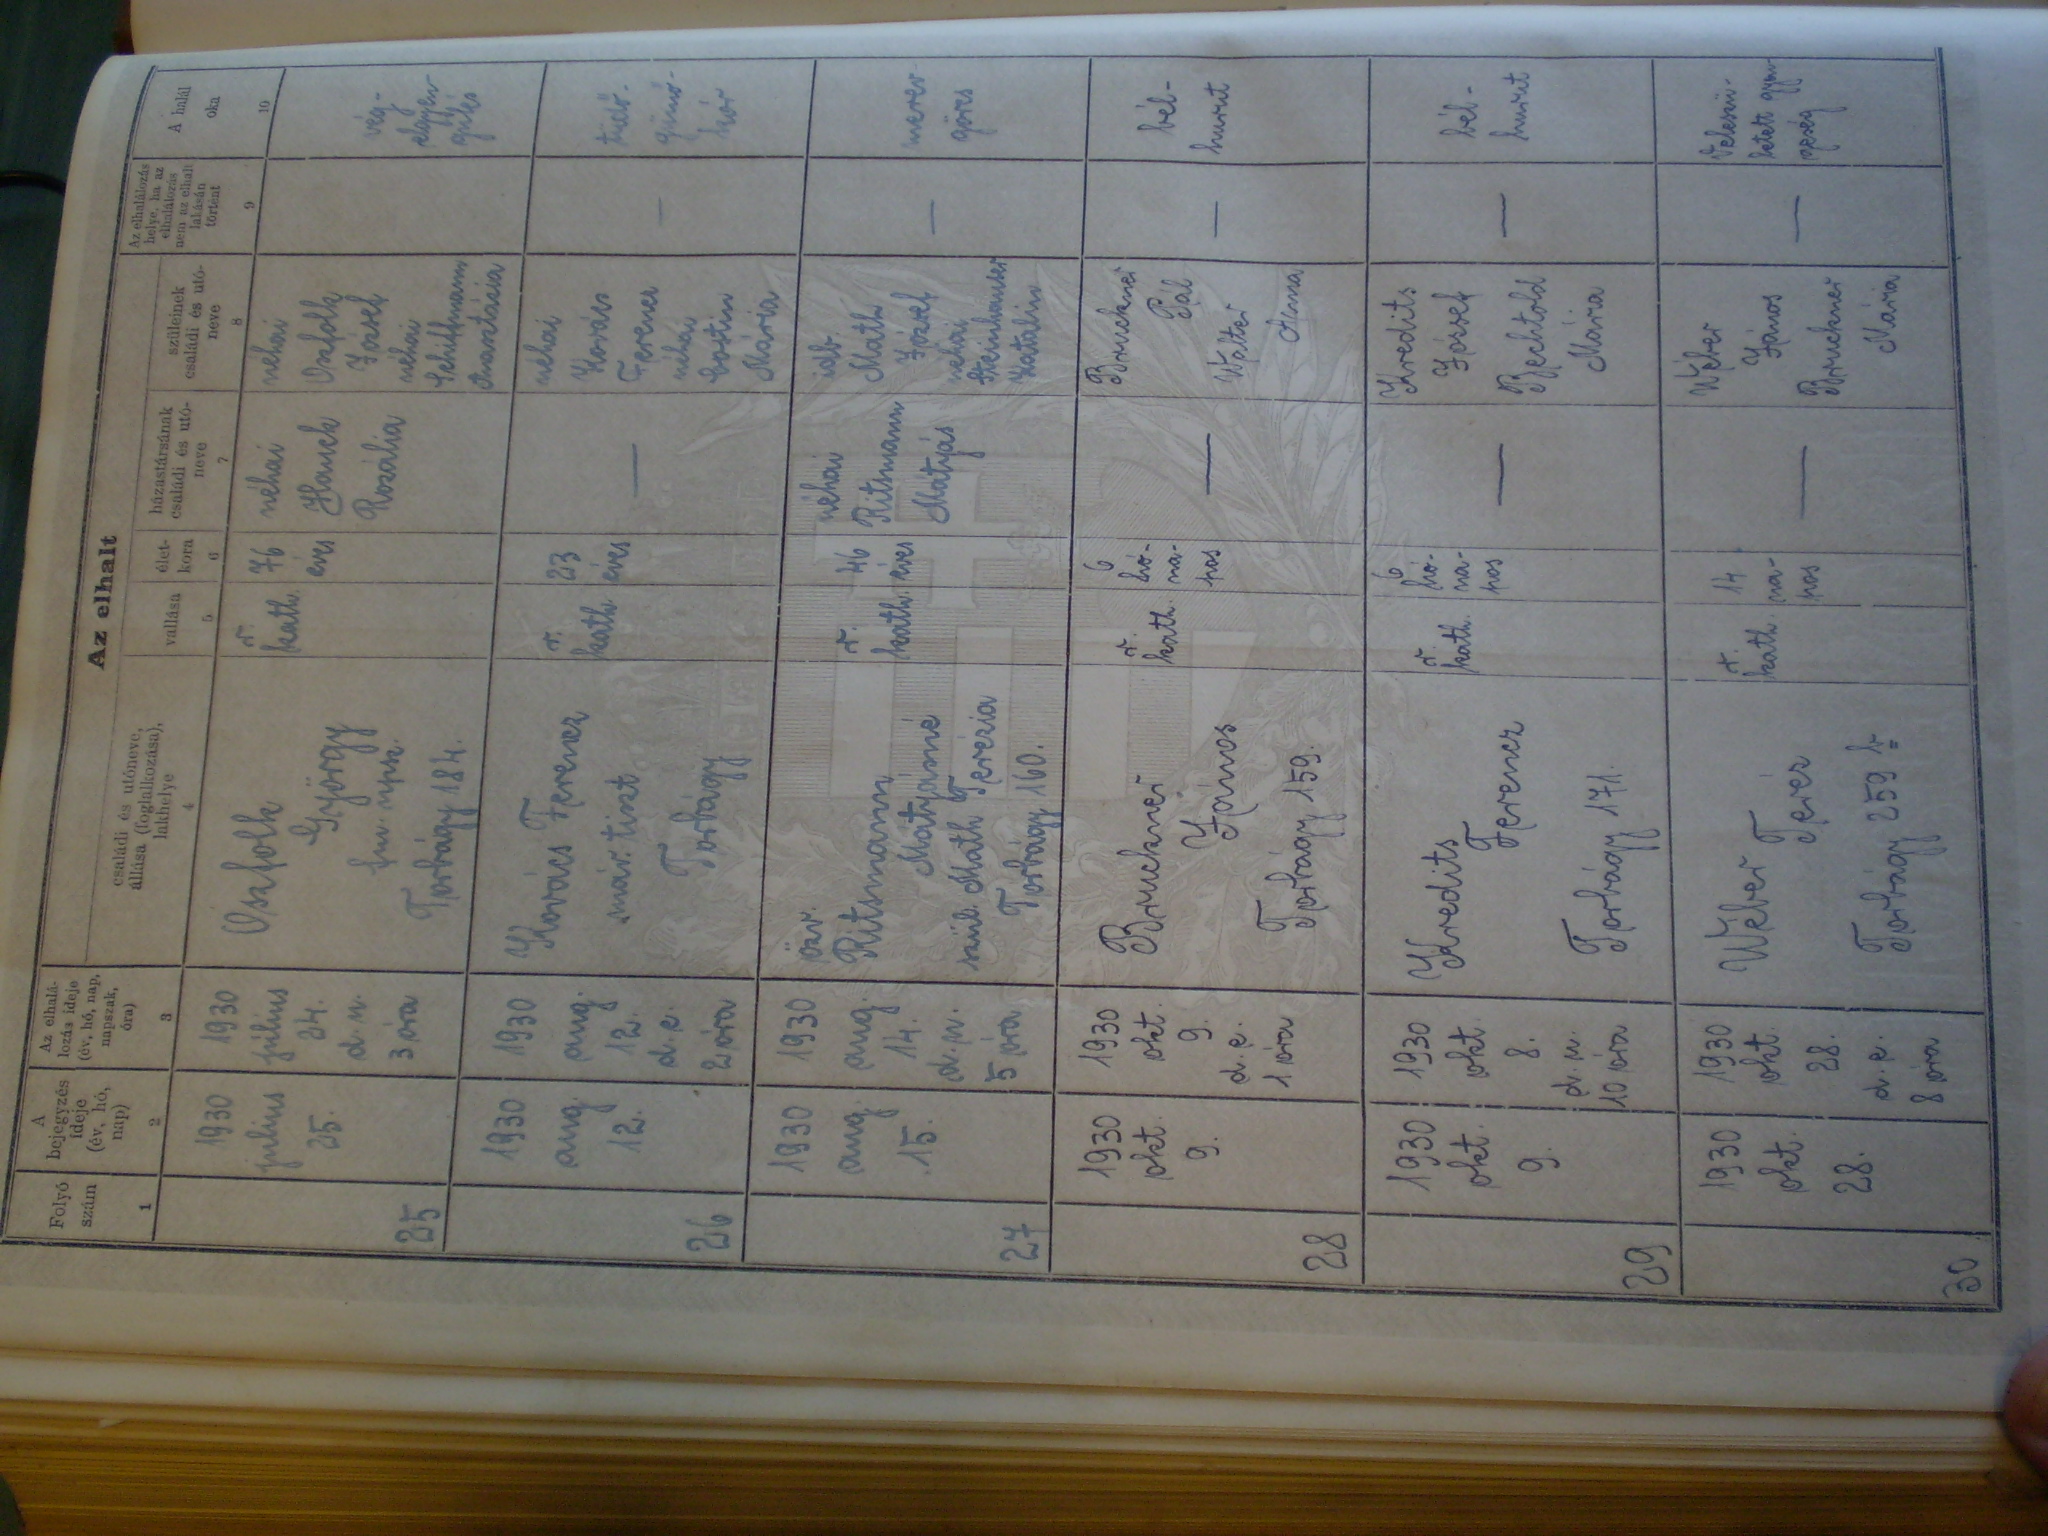 Az elhalt
Folyó
szám
A
bejegyzés
ideje
(év, hó,
nap)
Az elhalá-
lozás ideje
(év, hó, nap,
napszak,
óra)
családi és utóneve,
állása (foglalkozása),
lakhelye
vallása
élet-
kora
házastársának
családi és utó-
neve
szüleinek
családi és utó-
neve
Az elhalálozás
helye, ha az
elhalálozás
nem az elhalt
lakásán
történt
A halál
oka
1
2
3
4
5
6
7
8
9
10
25
1930
július
25.
1930
július
24.
d. u.
3 óra
Oszfolk
György
fm. npsz.
Torbágy 184.
r.
kath.
76
éves
néhai
Hanek
Rozália
néhai
Oszfolk
József
néhai
Schiffmann
Anasztázia
vég-
elgyen-
gülés
26
1930
aug.
12.
1930
aug.
12.
d. e.
2 óra
Kovács Ferencz
máv. tiszt
Torbágy
r.
kath.
23
éves
—
néhai
Kovács
Ferencz
néhai
Mária
—
tüdő-
gümő-
kór
27
1930
aug.
15.
1930
aug.
14.
d. u.
5 óra
özv.
Ritsmann
Mátyásné
szül. Math Terézia
Torbágy 160.
r.
kath.
46
éves
néhai
Ritsmann
Mátyás
idb.
Math
József
néhai
Steinhauser
Katalin
—
merev-
görcs
28
1930
okt.
9.
1930
okt.
9.
d. e.
1 óra
Bruckner
János
Torbágy 159.
r.
kath.
6
hó-
na-
pos
—
Bruckner
Pál
Walter
Anna
—
bél-
hurut
29
1930
okt.
9.
1930
okt.
8.
d. u.
10 óra
Kredits
Ferencz
Torbágy 171.
r.
kath.
6
hó-
na-
pos
—
Kredits
József
Bechtold
Mária
—
bél-
hurut
30
1930
okt.
28.
1930
okt.
28.
d. e.
8 óra
Wéber
Teréz
Torbágy 259
r.
kath.
14
na-
pos
—
Wéber
János
Bruckner
Mária
—
Veleszü-
letett gyen-
geség